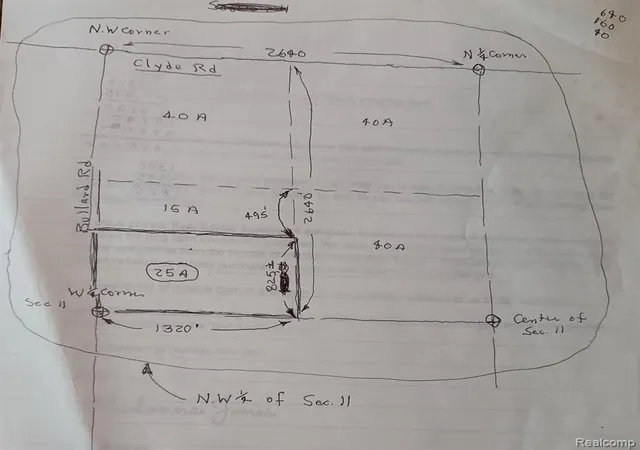 640
160
40
N.W Corner
2640
N 1/4 Corner
Clyde Rd
40 A
40 A
Bullard Rd
15 A
495'
2640
80 A
25 A
825'±
W 1/4 Corner
Sec. 11
1320'
Center of
Sec. 11
N.W 1/4 of Sec. 11
Realcomp